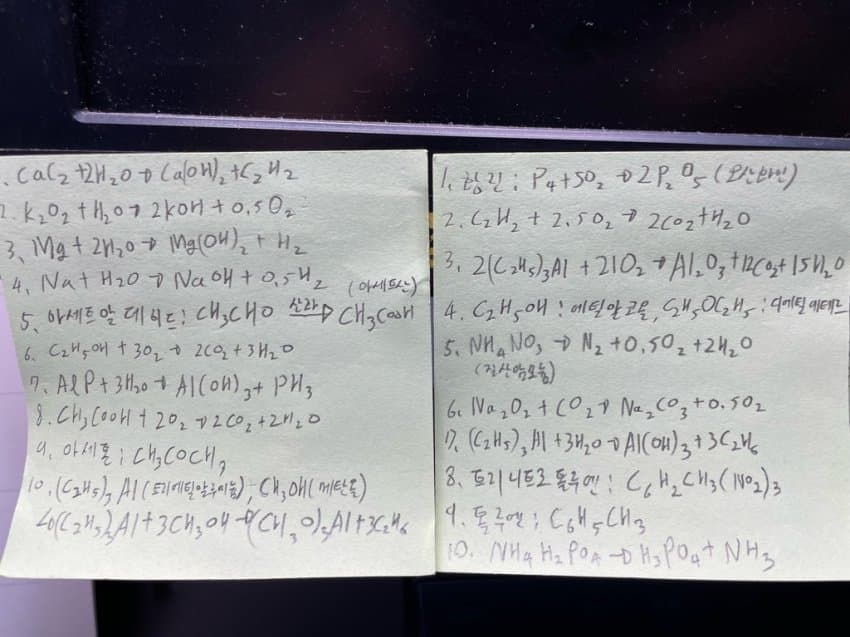 . CaC2 +2H2O → Ca(OH)2 + C2H2
2. K2O2 + H2O → 2KOH + 0.5O2
3. Mg + 2H2O → Mg(OH)2 + H2
4. Na + H2O → NaOH + 0.5H2 (아세트산)
5. 아세트알데히드: CH3CHO 산화→ CH3COOH
6. C2H5OH + 3O2 → 2CO2 + 3H2O
7. AlP + 3H2O → Al(OH)3 + PH3
8. CH3COOH + 2O2 → 2CO2 + 2H2O
9. 아세톤: CH3COCH3
10. (C2H5)3Al(트리에틸알루미늄), CH3OH(메탄올)
(C2H5)3Al + 3CH3OH → (CH3O)3Al + 3C2H6
1. 황린: P4 + 5O2 → 2P2O5 (오산화인)
2. C2H2 + 2.5O2 → 2CO2 + H2O
3. 2(C2H5)3Al + 21O2 → Al2O3 + 12CO2 + 15H2O
4. C2H5OH: 에틸알코올, C2H5OC2H5: 디에틸에테르
5. NH4NO3 → N2 + 0.5O2 + 2H2O
(질산암모늄)
6. Na2O2 + CO2 → Na2CO3 + 0.5O2
7. (C2H5)3Al + 3H2O → Al(OH)3 + 3C2H6
8. 트리니트로톨루엔: C6H2CH3(NO2)3
9. 톨루엔: C6H5CH3
10. NH4H2PO4 → H3PO4 + NH3